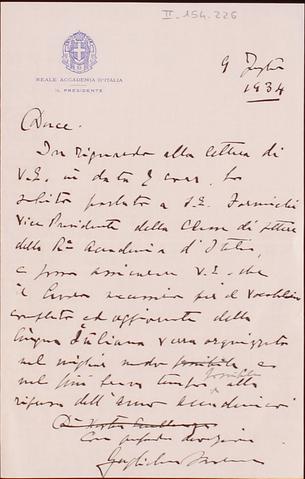 II. 154. 226
REALE ACCADEMIA D'ITALIA
IL PRESIDENTE
9 Luglio
1934
Duce,
In riguardo alla lettera di
V.E. in data 7 corr. ho
subito parlato a S.E. Formichi
Vice Presidente della Classe di Lettere
della Rle Accademia d'Italia,
e posso assicurare V.E. che
il lavoro necessario per il vocabolario
completo ed aggiornato della
lingua Italiana verrà organizzato
nel miglior modo possibile e
nel più breve tempo possibile alla
ripresa dell'anno accademico
Con profonda devozione
Guglielmo Marconi